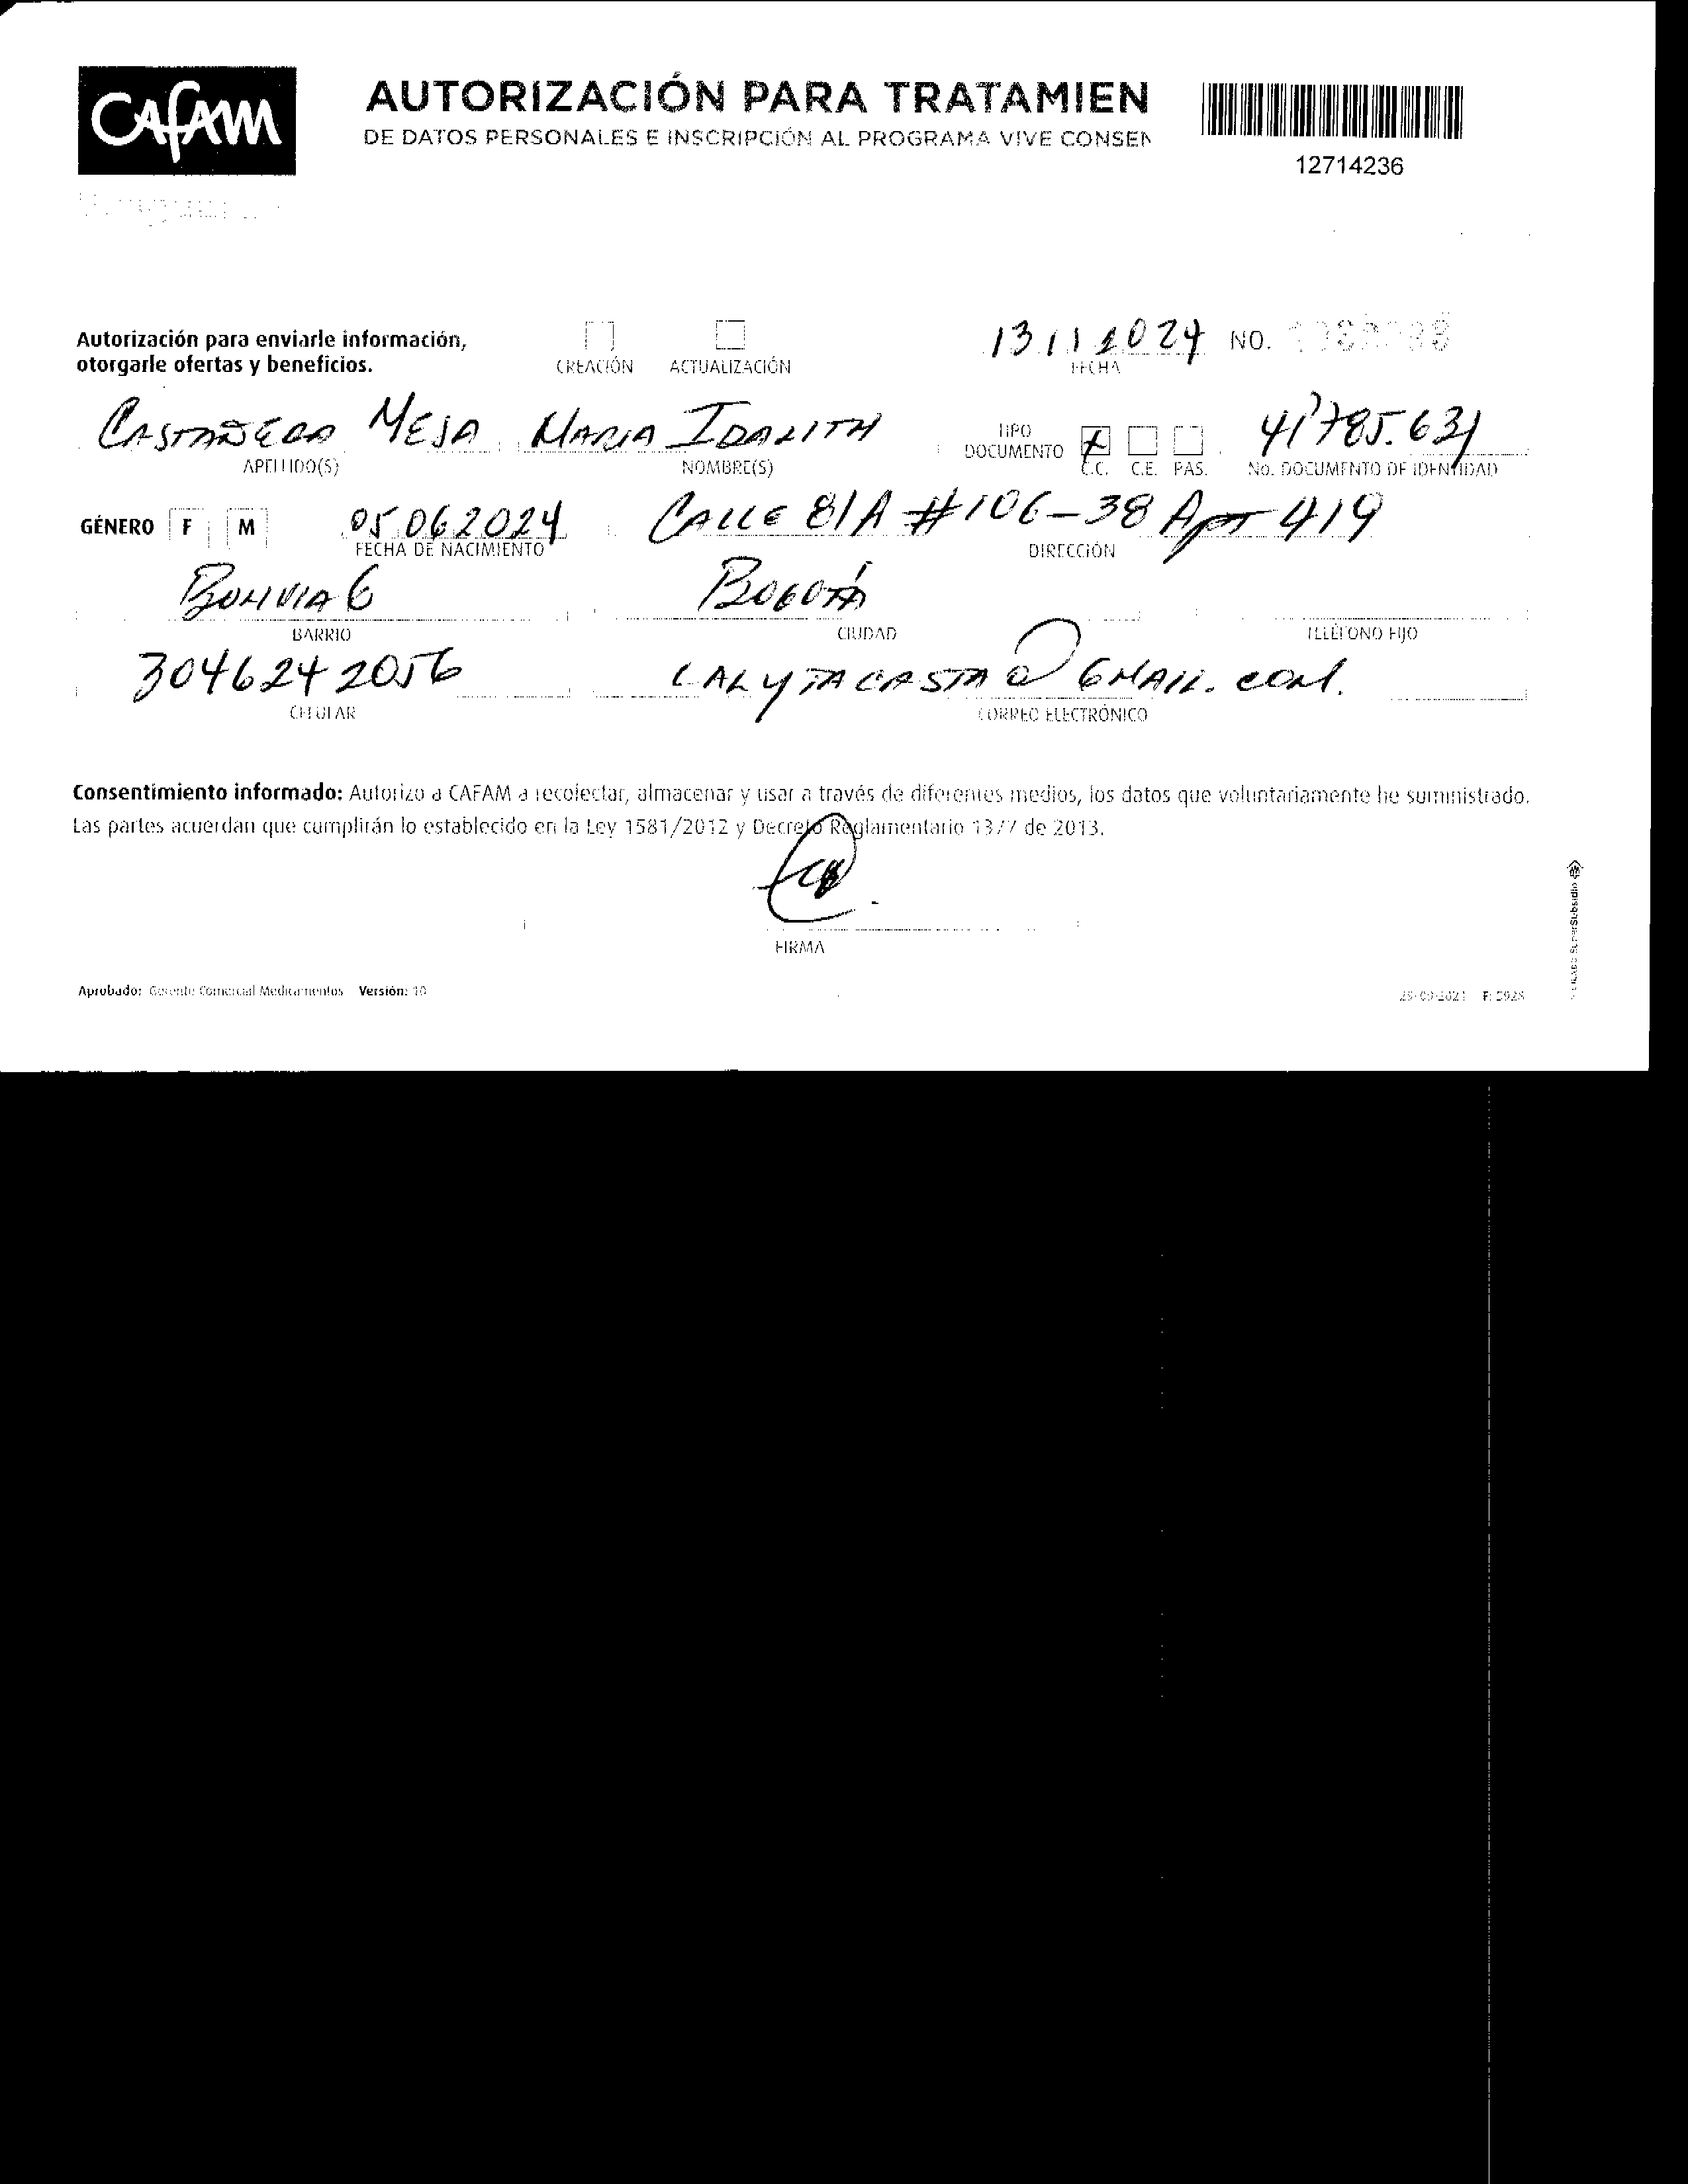 CAFAM
AUTORIZACIÓN PARA TRATAMIEN
DE DATOS PERSONALES E INSCRIPCIÓN AL PROGRAMA VIVE CONSEN
12714236
Autorización para enviarle información,
otorgarle ofertas y beneficios.
CREACIÓN ACTUALIZACIÓN
13 11 2024 NO.
FECHA
CASTAÑEDA MEJA MARIA IDALITH
APELLIDO(S) NOMBRE(S)
TIPO DOCUMENTO X C.C. C.E. PAS.
41'785.631
No. DOCUMENTO DE IDENTIDAD
GÉNERO F M 05 06 2024 CALLE 81A #106-38 APT 419
FECHA DE NACIMIENTO DIRECCIÓN
BOLIVIA 6 BOGOTÁ
BARRIO CIUDAD TELÉFONO FIJO
3046242056 LALYTACASTA@GMAIL.COM.
CELULAR CORREO ELECTRÓNICO
Consentimiento informado: Autorizo a CAFAM a recolectar, almacenar y usar a través de diferentes medios, los datos que voluntariamente he suministrado.
Las partes acuerdan que cumplirán lo establecido en la Ley 1581/2012 y Decreto Reglamentario 1377 de 2013.
FIRMA
Aprobado: Gerente Comercial Medicamentos Versión: 10
F: 5928
SuperSubsidio